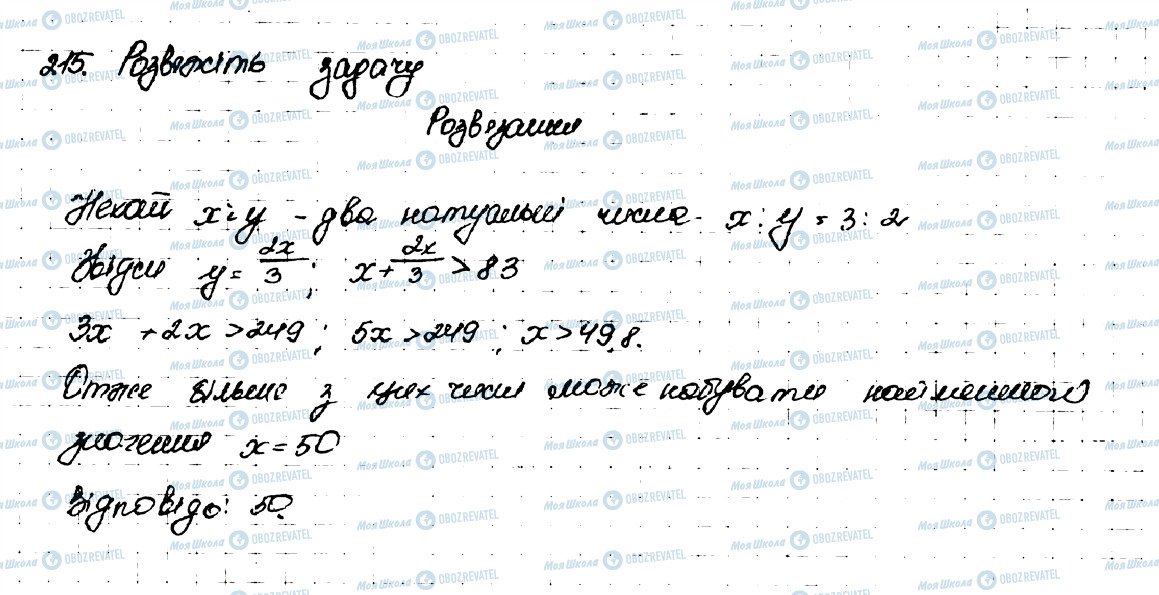 215. Розвяжіть задачу
Розвязання
Нехай x і y - два натуральні числа. x : y = 3 : 2
Звідси y = 2x/3 ; x + 2x/3 > 83
3x + 2x > 249 ; 5x > 249 ; x > 49,8.
Отже більше з цих чисел може набувати найменшого
значення x = 50
Відповідь: 50.
Моя Школа OBOZREVATEL